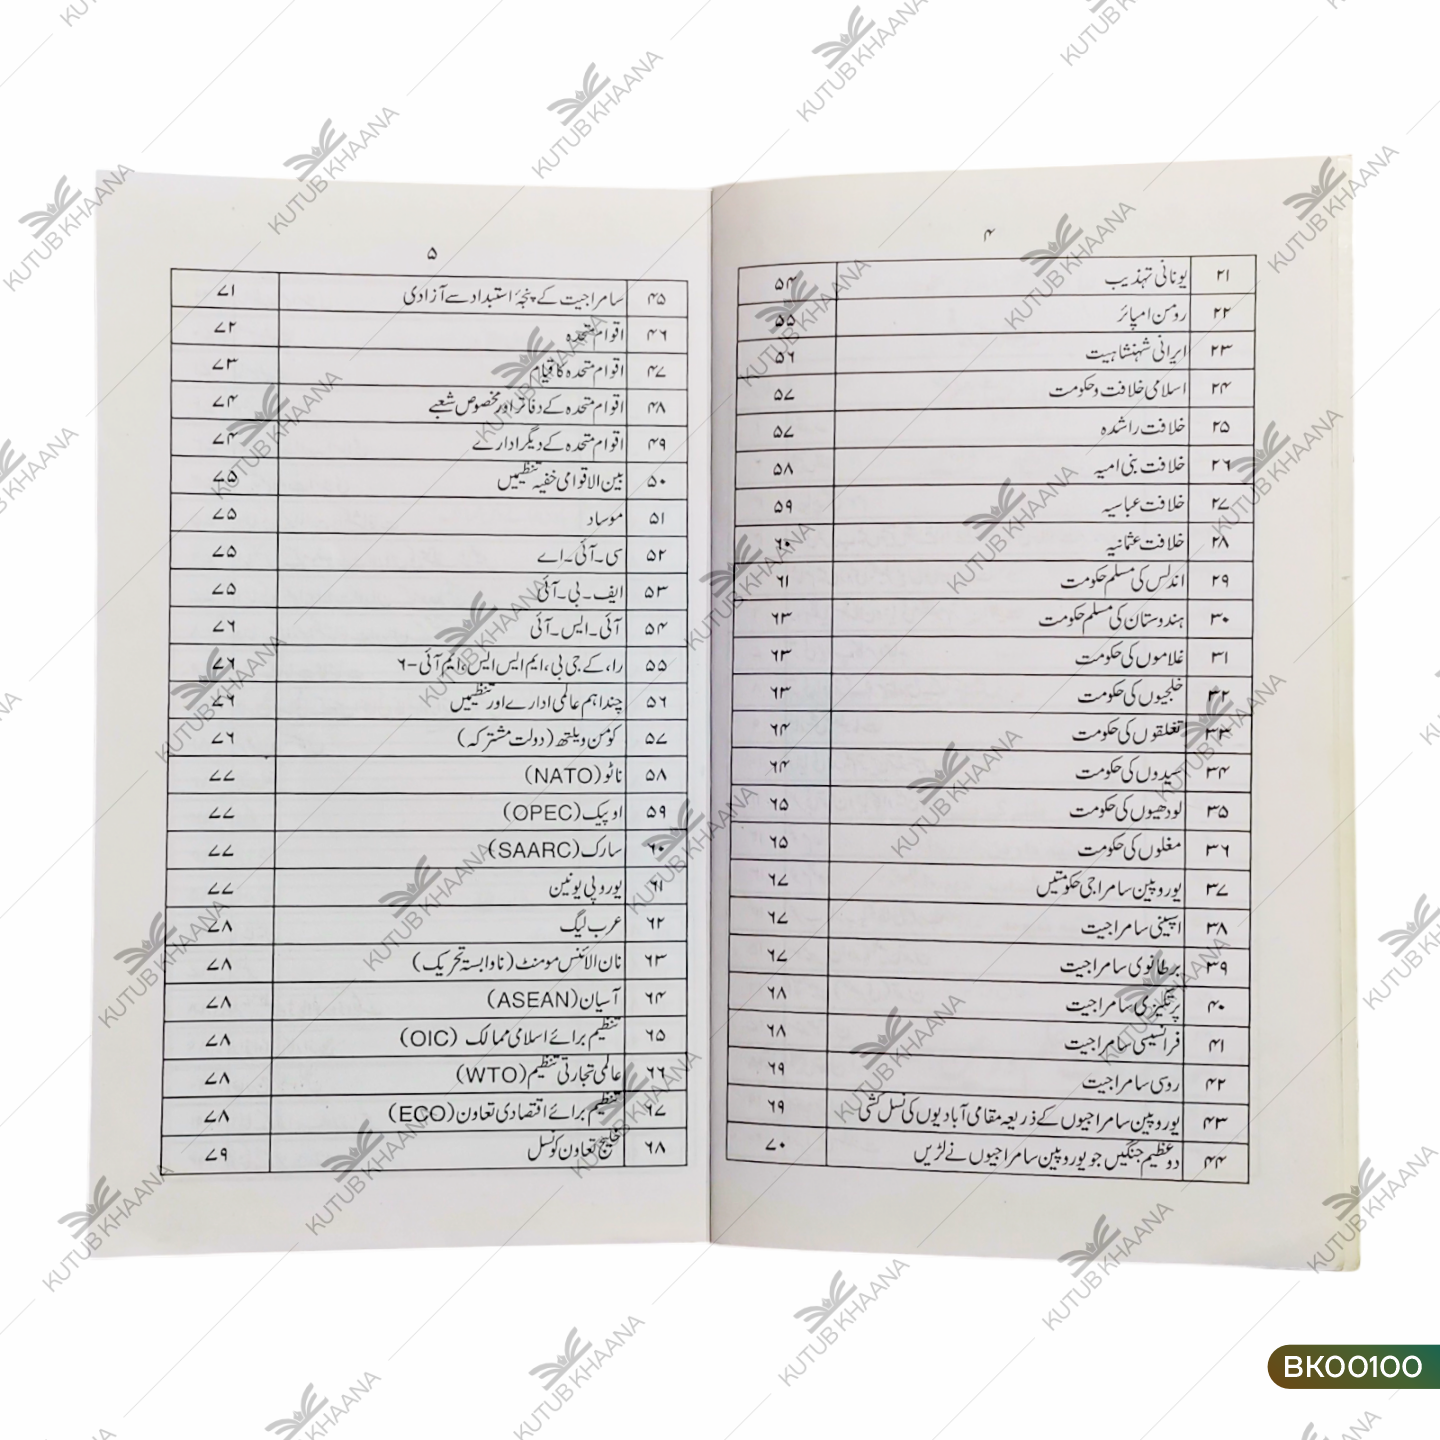 ۴
۲۱ یونانی تہذیب ۵۴
۲۲ رومن امپائر ۵۵
۲۳ ایرانی شہنشاہیت ۵۶
۲۴ اسلامی خلافت و حکومت ۵۷
۲۵ خلافت راشدہ ۵۷
۲۶ خلافت بنی امیہ ۵۸
۲۷ خلافت عباسیہ ۵۹
۲۸ خلافت عثمانیہ ۶۰
۲۹ اندلس کی مسلم حکومت ۶۱
۳۰ ہندوستان کی مسلم حکومت ۶۳
۳۱ غلاموں کی حکومت ۶۳
۳۲ خلجیوں کی حکومت ۶۳
۳۳ تغلقوں کی حکومت ۶۴
۳۴ سیدوں کی حکومت ۶۴
۳۵ لودھیوں کی حکومت ۶۵
۳۶ مغلوں کی حکومت ۶۵
۳۷ یوروپین سامراجی حکومتیں ۶۷
۳۸ اسپینی سامراجیت ۶۷
۳۹ برطانوی سامراجیت ۶۷
۴۰ پرتگیزی سامراجیت ۶۸
۴۱ فرانسیسی سامراجیت ۶۸
۴۲ روسی سامراجیت ۶۹
۴۳ یوروپین سامراجیوں کے ذریعہ مقامی آبادیوں کی نسل کشی ۶۹
۴۴ دو عظیم جنگیں جو یوروپین سامراجیوں نے لڑیں ۷۰
۵
۴۵ سامراجیت کے پنجۂ استبداد سے آزادی ۷۱
۴۶ اقوام متحدہ ۷۲
۴۷ اقوام متحدہ کا قیام ۷۳
۴۸ اقوام متحدہ کے دفاتر اور مخصوص شعبے ۷۴
۴۹ اقوام متحدہ کے دیگر ادارے ۷۴
۵۰ بین الاقوامی خفیہ تنظیمیں ۷۵
۵۱ موساد ۷۵
۵۲ سی۔آئی۔اے ۷۵
۵۳ ایف۔بی۔آئی ۷۵
۵۴ آئی۔ایس۔آئی ۷۶
۵۵ را، کے جی بی، ایم ایس ایس، ایم آئی-۶ ۷۶
۵۶ چند اہم عالمی ادارے اور تنظیمیں ۷۶
۵۷ کومن ویلتھ (دولت مشترکہ) ۷۶
۵۸ ناٹو (NATO) ۷۷
۵۹ اوپیک (OPEC) ۷۷
۶۰ سارک (SAARC) ۷۷
۶۱ یوروپی یونین ۷۷
۶۲ عرب لیگ ۷۸
۶۳ نان الائنس مومنٹ (ناوابستہ تحریک) ۷۸
۶۴ آسیان (ASEAN) ۷۸
۶۵ تنظیم برائے اسلامی ممالک (OIC) ۷۸
۶۶ عالمی تجارتی تنظیم (WTO) ۷۸
۶۷ تنظیم برائے اقتصادی تعاون (ECO) ۷۸
۶۸ خلیج تعاون کونسل ۷۹
KUTUB KHAANA
BK00100